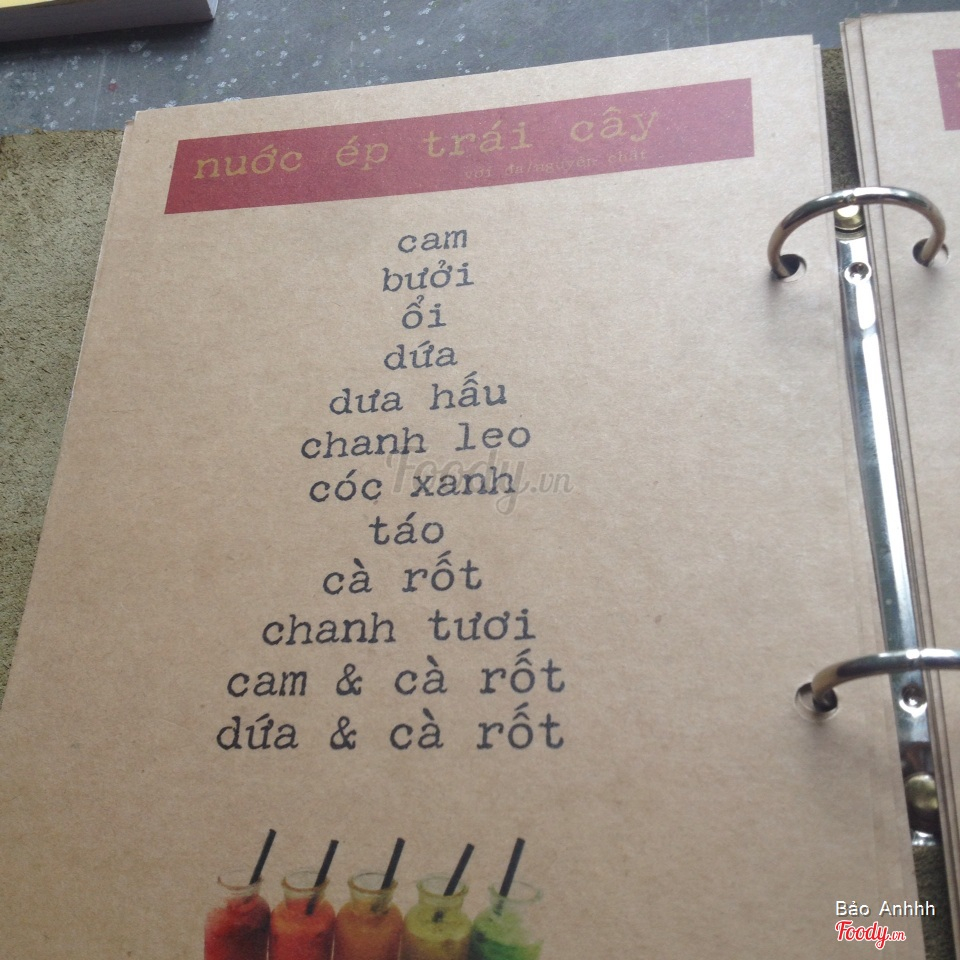 nước ép trái cây
với đá/nguyên chất
cam
bưởi
ổi
dứa
dưa hấu
chanh leo
cóc xanh
táo
cà rốt
chanh tươi
cam & cà rốt
dứa & cà rốt
Foody.vn
Bảo Anhhh
Foody.vn